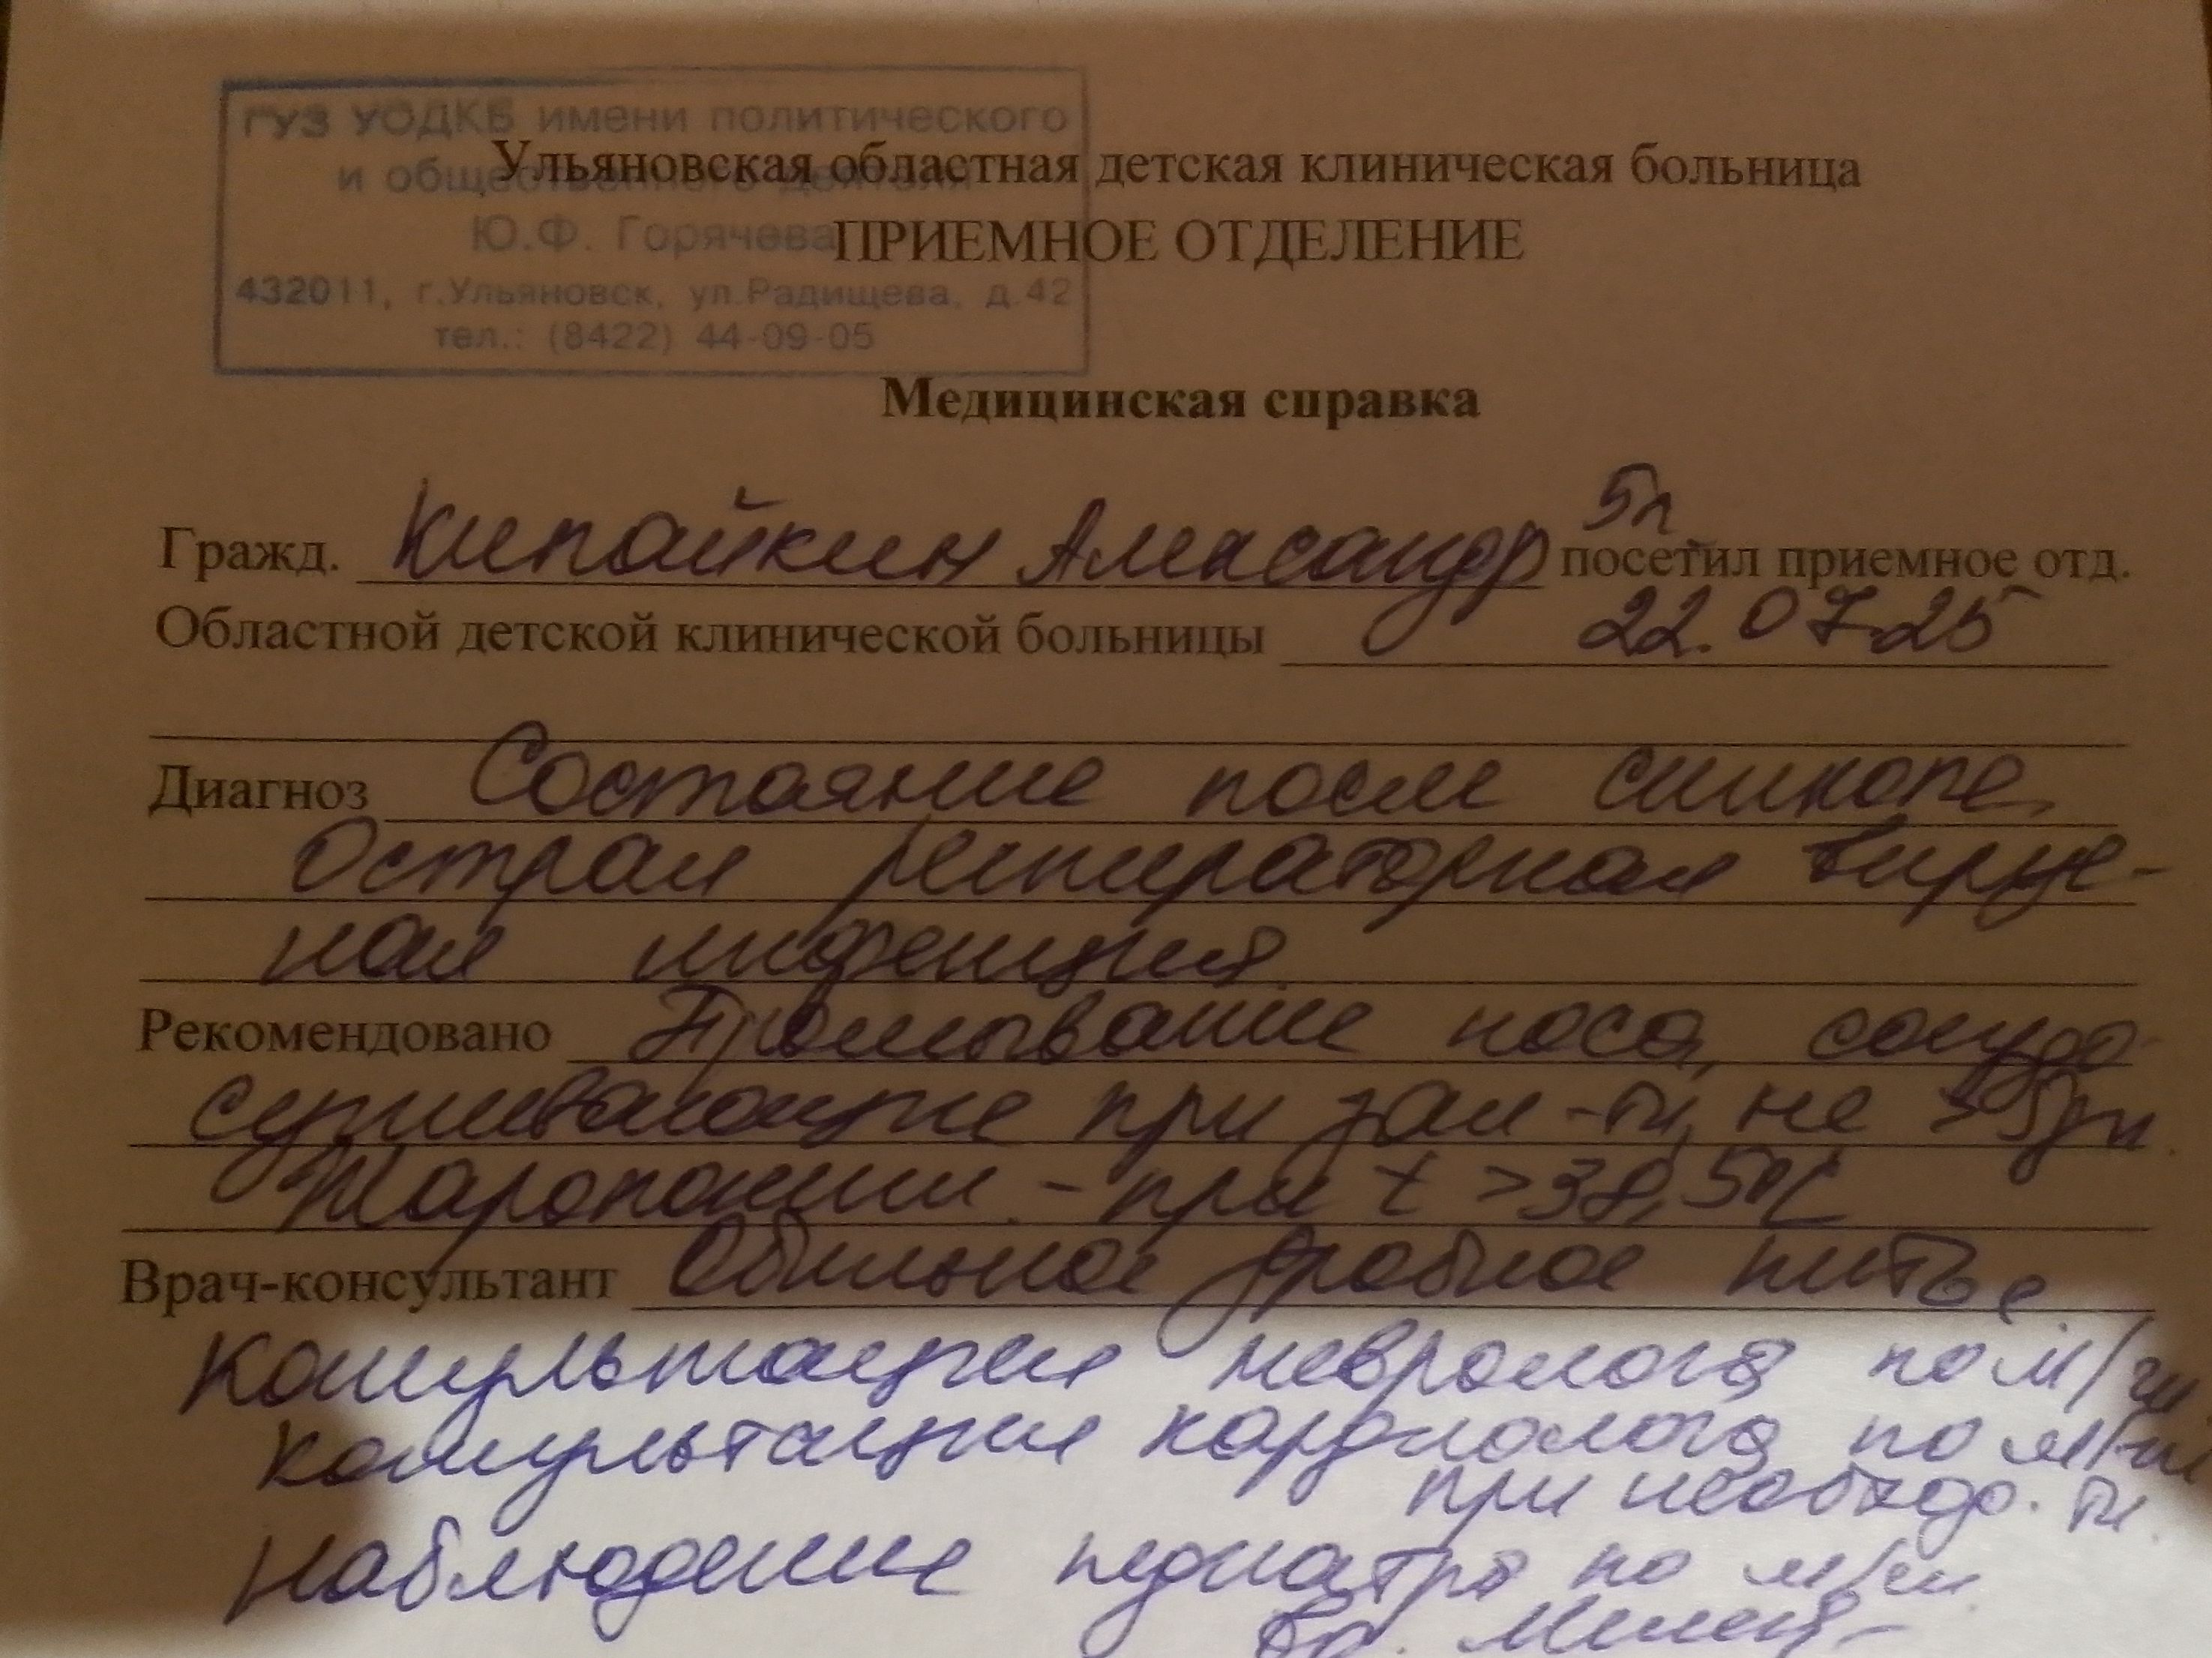 ГУЗ УОДКБ имени политического
и общественного деятеля
Ю.Ф. Горячева
432011, г.Ульяновск, ул.Радищева, д.42
тел.: (8422) 44-09-05
Ульяновская областная детская клиническая больница
ПРИЕМНОЕ ОТДЕЛЕНИЕ
Медицинская справка
5л
Гражд. Кипайкин Александр посетил приемное отд.
Областной детской клинической больницы 22.07.25
Диагноз Состояние после синкопе.
Острая респираторная вирус-
ная инфекция.
Рекомендовано Промывание носа, сосудо-
суживающие при зал-ти, не > 5дн.
Жаропониж. - при t >38,5°C
Врач-консультант Обильное дробное питье
Консультация невролога по м/ж
Консультация кардиолога по м/ж
при необход-ти.
Наблюдение педиатра по м/ж.
Вр.